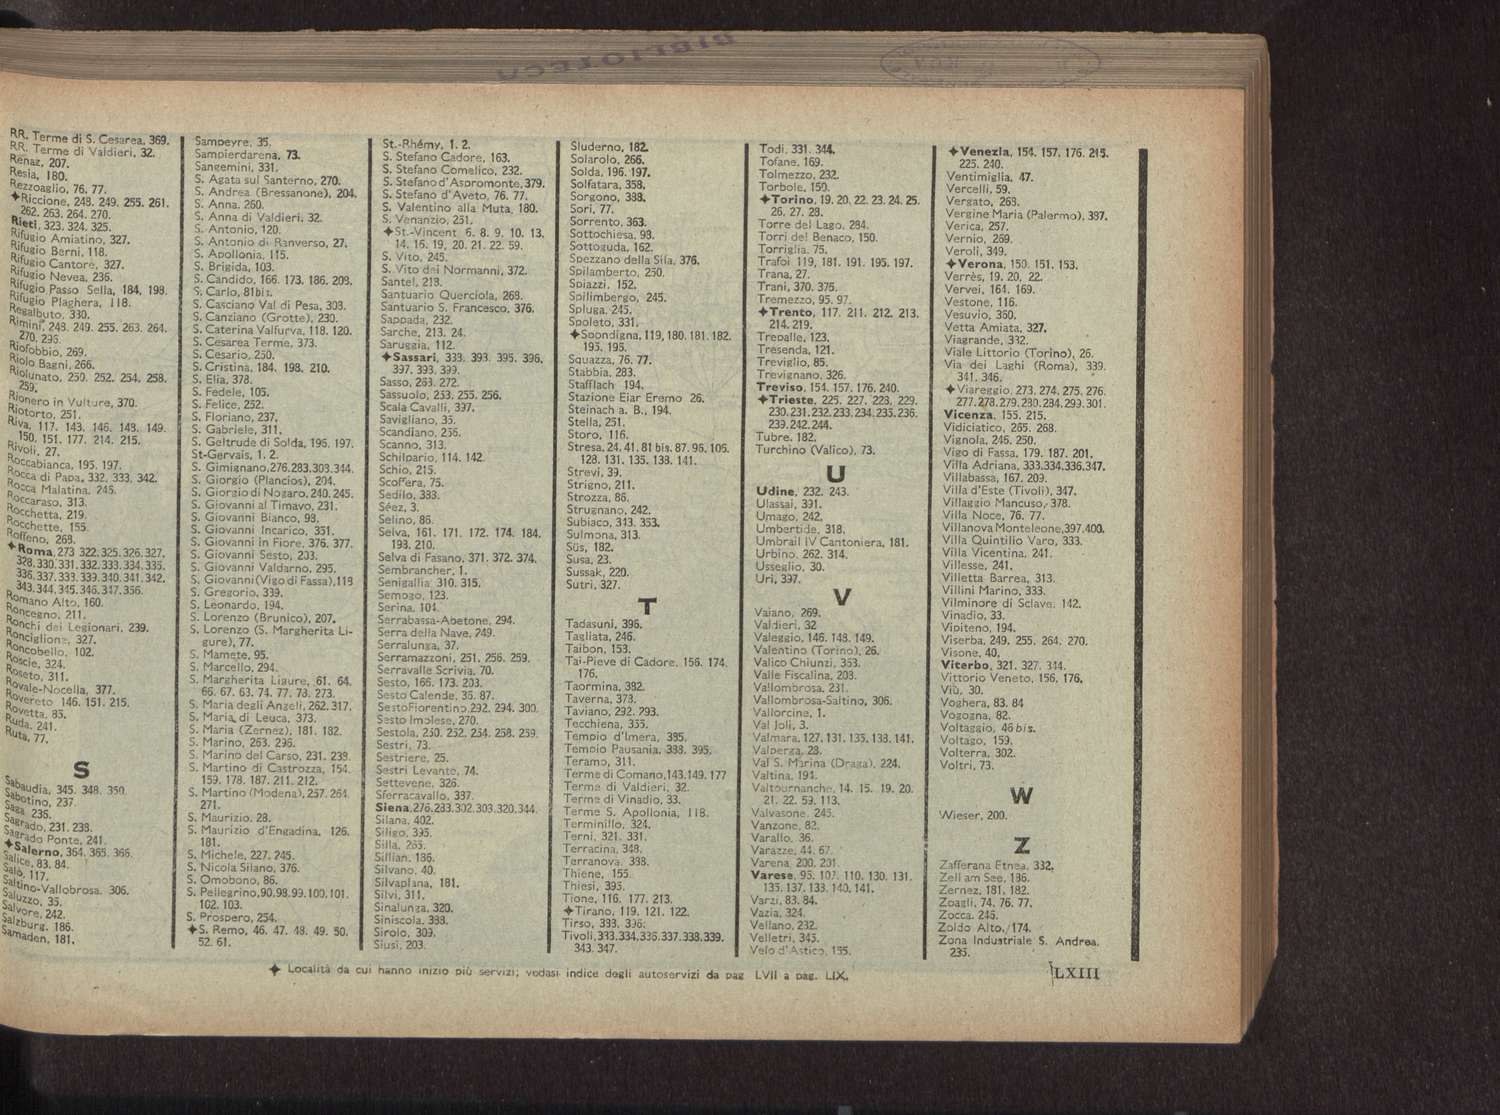 BIBLIOTECA
RR. Terme di S. Cesarea, 369.
RR. Terme di Valdieri, 32.
Renaz, 207.
Resia, 180.
Rezzoaglio, 76. 77.
✦Riccione, 248. 249. 255. 261.
262. 263. 264. 270.
Rieti, 323. 324. 325.
Rifugio Amiatino, 327.
Rifugio Berni, 118.
Rifugio Cantore, 327.
Rifugio Nevea, 236.
Rifugio Passo Sella, 184. 198.
Rifugio Plaghera, 118.
Regalbuto, 330.
Rimini, 248. 249. 255. 263. 264.
270. 296.
Riofobbio, 269.
Riolo Bagni, 266.
Riolunato, 250. 252. 254. 258.
259.
Rionero in Vulture, 370.
Riotorto, 251.
Riva, 117. 143. 146. 148. 149.
150. 151. 177. 214. 215.
Rivoli, 27.
Roccabianca, 195. 197.
Rocca di Papa, 332. 333. 342.
Rocca Malatina, 245.
Roccaraso, 313.
Rocchetta, 219.
Rocchette, 155.
Roffeno, 268.
✦Roma, 273 322. 325. 326. 327.
328. 330. 331. 332. 333. 334. 335.
336. 337. 333. 339. 340. 341. 342.
343. 344. 345. 346. 347. 356.
Romano Alto, 160.
Roncegno, 211.
Ronchi dei Legionari, 239.
Ronciglione, 327.
Roncobello, 102.
Roscie, 324.
Roseto, 311.
Rovale-Nocella, 377.
Rovereto 146. 151. 215.
Rovetta, 85.
Ruda, 241.
Ruta, 77.
S
Sabaudia, 345. 348. 350.
Sabotino, 237.
Saga 236.
Sagrado, 231. 238.
Sagrado Ponte, 241.
✦Salerno, 364. 365. 366.
Salice, 83. 84.
Salò, 117.
Saltino-Vallobrosa. 306.
Saluzzo, 35.
Salvore, 242.
Salzburg, 186.
Samaden, 181.
Sampeyre, 35.
Sampierdarena, 73.
Sangemini, 331.
S. Agata sul Santerno, 270.
S. Andrea (Bressanone), 204.
S. Anna, 260.
S. Anna di Valdieri, 32.
S. Antonio, 120.
S. Antonio di Ranverso, 27.
S. Apollonia, 115.
S. Brigida, 103.
S. Candido, 166. 173. 186. 208.
S. Carlo, 81bis.
S. Casciano Val di Pesa, 308.
S. Canziano (Grotte), 230.
S. Caterina Valfurva, 118. 120.
S. Cesarea Terme, 373.
S. Cesario, 250.
S. Cristina, 184. 198. 210.
S. Elia, 378.
S. Fedele, 105.
S. Felice, 252.
S. Floriano, 237.
S. Gabriele, 311.
S. Geltrude di Solda, 196. 197.
St-Gervais, 1. 2.
S. Gimignano, 276. 283. 303. 344.
S. Giorgio (Plancios), 204.
S. Giorgio di Nogaro, 240. 245.
S. Giovanni al Timavo, 231.
S. Giovanni Bianco, 98.
S. Giovanni Incarico, 351.
S. Giovanni in Fiore, 376. 377.
S. Giovanni Sesto, 203.
S. Giovanni Valdarno, 295.
S. Giovanni (Vigo di Fassa), 118
S. Gregorio, 339.
S. Leonardo, 194.
S. Lorenzo (Brunico), 207.
S. Lorenzo (S. Margherita Li-
gure), 77.
S. Mamete, 95.
S. Marcello, 294.
S. Margherita Ligure, 61. 64.
66. 67. 63. 74. 77. 78. 273.
S. Maria degli Angeli, 262. 317.
S. Maria di Leuca, 373.
S. Maria (Zernez), 181. 182.
S. Marino, 263. 296.
S. Marino del Carso, 231. 238.
S. Martino di Castrozza, 154.
159. 178. 187. 211. 212.
S. Martino (Modena), 257. 264.
271.
S. Maurizio, 28.
S. Maurizio d'Engadina, 126.
181.
S. Michele, 227. 245.
S. Nicola Silano, 376.
S. Omobono, 86.
S. Pellegrino, 90. 98. 99. 100. 101.
102. 103.
S. Prospero, 254.
✦S. Remo, 46. 47. 48. 49. 50.
52. 61.
St.-Rhémy, 1. 2.
S. Stefano Cadore, 163.
S. Stefano Comelico, 232.
S. Stefano d'Aspromonte, 379.
S. Stefano d'Aveto, 76. 77.
S. Valentino alla Muta, 180.
S. Venanzio, 251.
✦St.-Vincent 6. 8. 9. 10. 13.
14. 16. 19. 20. 21. 22. 59.
S. Vito, 245.
S. Vito dei Normanni, 372.
Santel, 218.
Santuario Querciola, 268.
Santuario S. Francesco, 376.
Sappada, 232.
Sarche, 213. 24.
Saruggia, 112.
✦Sassari, 333. 393. 395. 396.
397. 398. 399.
Sasso, 263. 272.
Sassuolo, 253. 255. 256.
Scala Cavalli, 397.
Savigliano, 35.
Scandiano, 256.
Scanno, 313.
Schilpario, 114. 142.
Schio, 215.
Scoffera, 75.
Sedilo, 383.
Séez, 3.
Selino, 86.
Selva, 161. 171. 172. 174. 184.
198. 210.
Selva di Fasano, 371. 372. 374.
Sembrancher, 1.
Senigallia 310. 315.
Semogo, 123.
Serina, 104.
Serrabassa-Abetone, 294.
Serra della Nave, 249.
Serralunga, 37.
Serramazzoni, 251. 256. 259.
Serravalle Scrivia, 70.
Sesto, 166. 173. 203.
Sesto Calende, 36. 87.
Sesto Fiorentino, 292. 294. 300.
Sesto Imolese, 270.
Sestola, 250. 252. 254. 258. 259.
Sestri, 73.
Sestriere, 25.
Sestri Levante, 74.
Settevene, 326.
Sferracavallo, 337.
Siena, 276. 283. 302. 303. 320. 344.
Silana, 402.
Siligo, 395.
Silla, 265.
Sillian, 186.
Silvano, 40.
Silvaplana, 181.
Silvi, 311.
Sinalunga, 320.
Siniscola, 388.
Sirolo, 309.
Siusi, 203.
Sluderno, 182.
Solarolo, 266.
Solda, 196. 197.
Solfatara, 358.
Sorgono, 388.
Sori, 77.
Sorrento, 363.
Sottochiesa, 98.
Sottoguda, 162.
Spezzano della Sila, 376.
Spilamberto, 250.
Spiazzi, 152.
Spilimbergo, 245.
Spluga, 245.
Spoleto, 331.
✦Spondigna, 119, 180. 181. 182.
195. 196.
Squazza, 76. 77.
Stabbia, 283.
Stafflach 194.
Stazione Eiar Eremo 26.
Steinach a. B., 194.
Stella, 251.
Storo, 116.
Stresa, 24. 41. 81 bis. 87. 96. 106.
128. 131. 135. 138. 141.
Strevi, 39.
Strigno, 211.
Strozza, 86.
Strugnano, 242.
Subiaco, 313. 353.
Sulmona, 313.
Süs, 182.
Susa, 23.
Sussak, 220.
Sutri, 327.
T
Tadasuni, 396.
Tagliata, 246.
Taibon, 153.
Tai-Pieve di Cadore, 156. 174.
176.
Taormina, 382.
Taverna, 378.
Taviano, 292. 293.
Tecchiena, 355.
Tempio d'Imera, 385.
Tempio Pausania, 388. 395.
Teramo, 311.
Terme di Comano, 143. 149. 177
Terme di Valdieri, 32.
Terme di Vinadio, 33.
Terme S. Apollonia, 118.
Terminillo, 324.
Terni, 321. 331.
Terracina, 348.
Terranova, 388.
Thiene, 155.
Thiesi, 395.
Tione, 116. 177. 213.
✦Tirano, 119. 121. 122.
Tirso, 383. 396.
Tivoli, 333. 334. 336. 337. 338. 339.
343. 347.
Todi, 331. 344.
Tofane, 169.
Tolmezzo, 232.
Torbole, 150.
✦Torino, 19. 20. 22. 23. 24. 25.
26. 27. 28.
Torre del Lago, 284.
Torri del Benaco, 150.
Torriglia, 75.
Trafoi 119, 181. 191. 195. 197.
Trana, 27.
Trani, 370. 375.
Tremezzo, 95. 97.
✦Trento, 117. 211. 212. 213.
214. 219.
Trepalle, 123.
Tresenda, 121.
Treviglio, 85.
Trevignano, 326.
Treviso, 154. 157. 176. 240.
✦Trieste, 225. 227. 228. 229.
230. 231. 232. 233. 234. 235. 236.
239. 242. 244.
Tubre, 182.
Turchino (Valico), 73.
U
Udine, 232. 243.
Ulassai, 391.
Umago, 242.
Umbertide, 318.
Umbrail IV Cantoniera, 181.
Urbino, 262. 314.
Usseglio, 30.
Uri, 397.
V
Vaiano, 269.
Valdieri, 32
Valeggio, 146. 148. 149.
Valentino (Torino), 26.
Valico Chiunzi, 363.
Valle Fiscalina, 203.
Vallombrosa, 231.
Vallombrosa-Saltino, 306.
Vallorcine, 1.
Val Joli, 3.
Valmara, 127. 131. 135. 138. 141.
Valperga, 28.
Val S. Marina (Draga), 224.
Valtina, 194.
Valtournanche, 14. 15. 19. 20.
21. 22. 59. 113.
Valvasone, 245.
Vanzone, 82.
Varallo, 36.
Varazze, 44. 67.
Varena, 200. 201.
Varese, 95. 107. 110. 130. 131.
135. 137. 138. 140. 141.
Varzi, 83. 84.
Vazia, 324.
Vellano, 232.
Velletri, 345.
Velo d'Astico, 155.
✦Venezia, 154. 157. 176. 215.
225. 240.
Ventimiglia, 47.
Vercelli, 59.
Vergato, 268.
Vergine Maria (Palermo), 387.
Verica, 257.
Vernio, 269.
Veroli, 349.
✦Verona, 150. 151. 153.
Verrès, 19. 20. 22.
Vervei, 164. 169.
Vestone, 116.
Vesuvio, 360.
Vetta Amiata, 327.
Viagrande, 332.
Viale Littorio (Torino), 26.
Via dei Laghi (Roma), 339.
341. 346.
✦Viareggio, 273. 274. 275. 276.
277. 278. 279. 280. 284. 299. 301.
Vicenza, 155. 215.
Vidiciatico, 265. 268.
Vignola, 246. 250.
Vigo di Fassa, 179. 187. 201.
Villa Adriana, 333. 334. 336. 347.
Villabassa, 167. 209.
Villa d'Este (Tivoli), 347.
Villaggio Mancuso, 378.
Villa Noce, 76. 77.
Villanova Monteleone, 397. 400.
Villa Quintilio Varo, 333.
Villa Vicentina, 241.
Villesse, 241.
Villetta Barrea, 313.
Villini Marino, 333.
Vilminore di Sclave, 142.
Vinadio, 33.
Vipiteno, 194.
Viserba, 249. 255. 264. 270.
Visone, 40.
Viterbo, 321. 327. 344.
Vittorio Veneto, 156. 176.
Viù, 30.
Voghera, 83. 84
Vogogna, 82.
Voltaggio, 46 bis.
Voltago, 159.
Volterra, 302.
Voltri, 73.
W
Wieser, 200.
Z
Zafferana Etnea, 332.
Zell am See, 186.
Zernez, 181. 182.
Zoagli, 74. 76. 77.
Zocca, 245.
Zoldo Alto, 174.
Zona Industriale S. Andrea,
235.
✦ Località da cui hanno inizio più servizi; vedasi indice degli autoservizi da pag LVII a pag. LIX.
LXIII